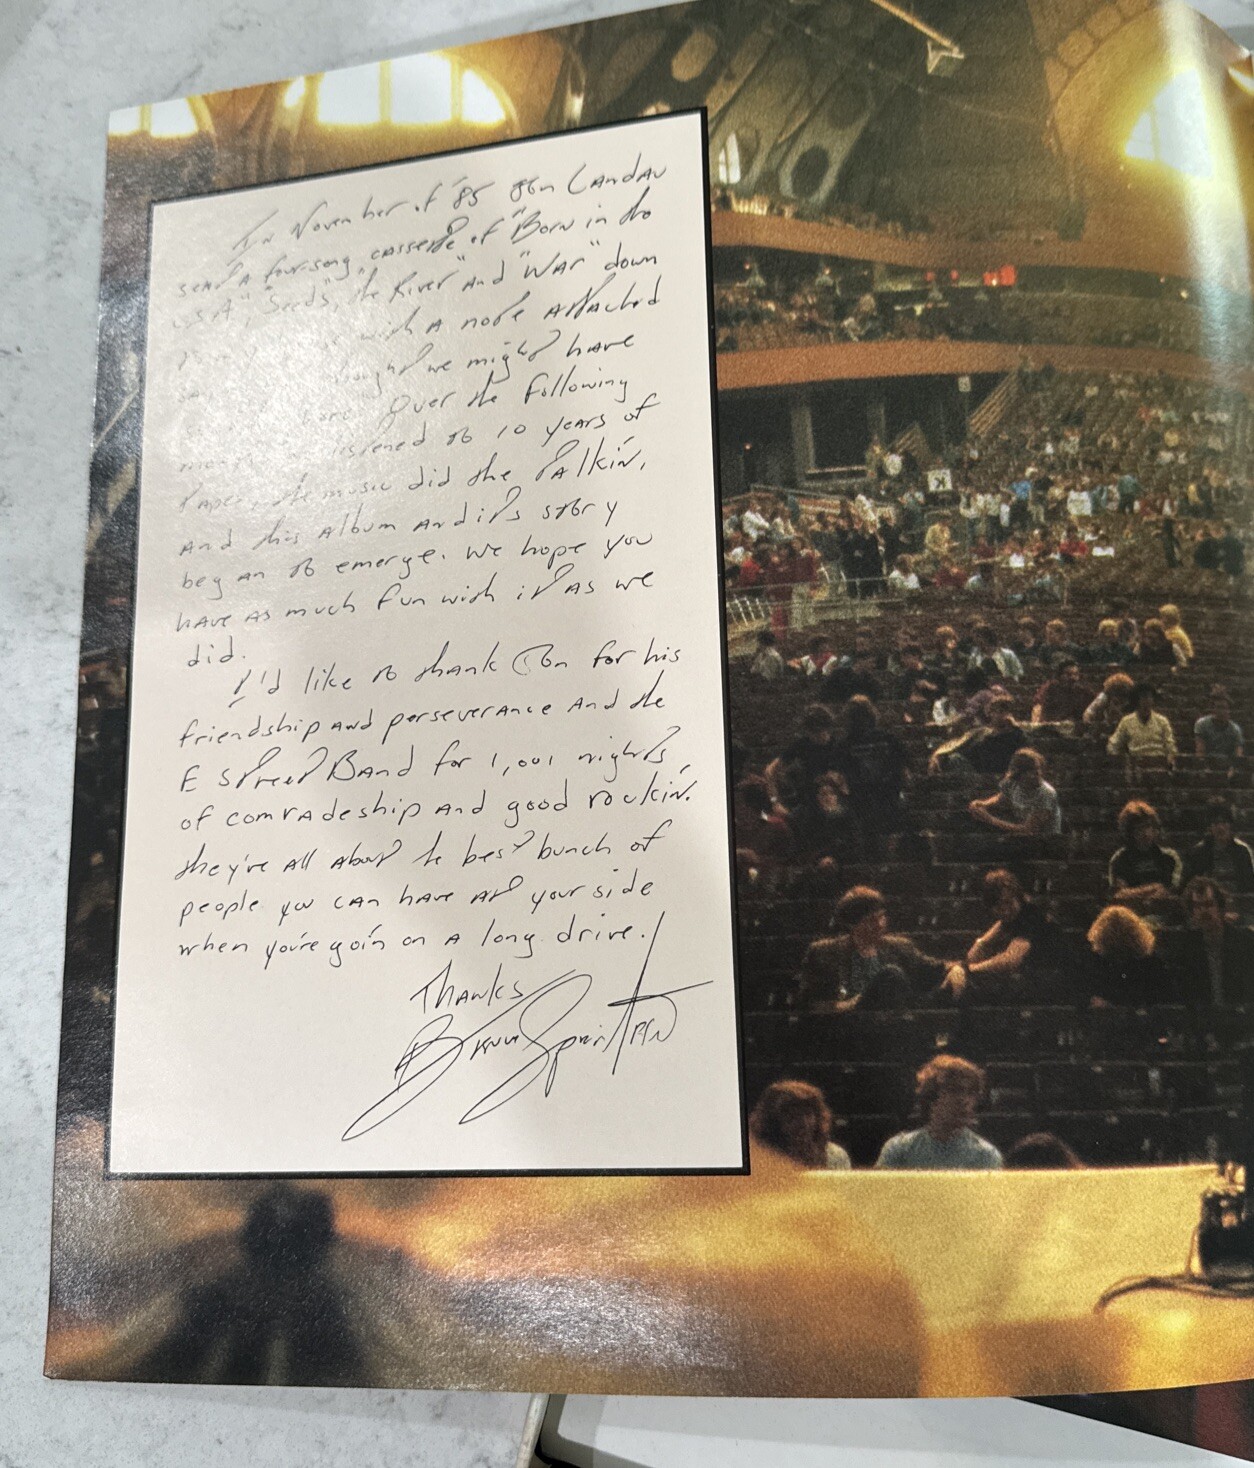 In November of '85 Jon Landau
sent a four-song cassette of "Born in the
USA", "Seeds", "the River" and "War" down
with a note attached
thought we might have
Over the following
months listened to 10 years of
tapes, the music did the talkin',
and this album and it's story
began to emerge. We hope you
have as much fun with it as we
did.
I'd like to thank Jon for his
friendship and perseverance and the
E Street Band for 1,001 nights
of comradeship and good rockin'.
they're all about the best bunch of
people you can have at your side
when you're goin' on a long drive.
Thanks
Bruce Springsteen